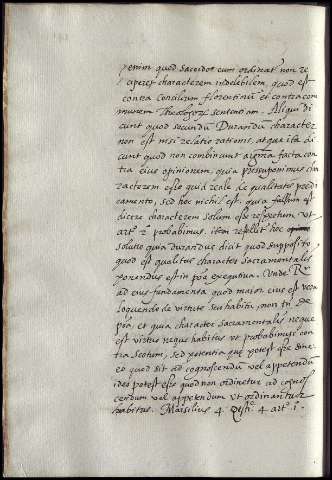 penim quod sacerdos cum ordinat non re
ciperet characterem indelebilem, quod est
contra Concilium florentinū et contra com
munem Theologorȝ sententiam. Aliqui di
cunt quod secundū Durandū character
non est nisi relatio rationis, atqui isti di
cunt quod non convincunt argumēta facta con
tra eius opinionem, quia presupponimus cha
racterem esse quid reale de qualitatis predi
camento, sed hoc nichil est. quia falsum est
dicere characterem solum esse respectum ut
artº 2 probabimus. item refellit hec
solutio quia durandus dicit quod supposito
quod est qualitas character sacramentalis
ponendus est in pōa executiva. Unde Rº
ad eius fundamenta quod maior eius est vera
loquendo de virtute seu habitu, non tn̄ de
pōa, et quia character sacramentalis neque
est virtus neque habitus ut probabimus con
tra scotum, sed potentia que potest esse
eo quod sit ad cognoscendū vel appetendū
ideo potest esse quod non ordinetur ad cognos
cendum vel appetendum ut ordinantur
habitus. Marsilius 4 qēstº 4 artº 1º